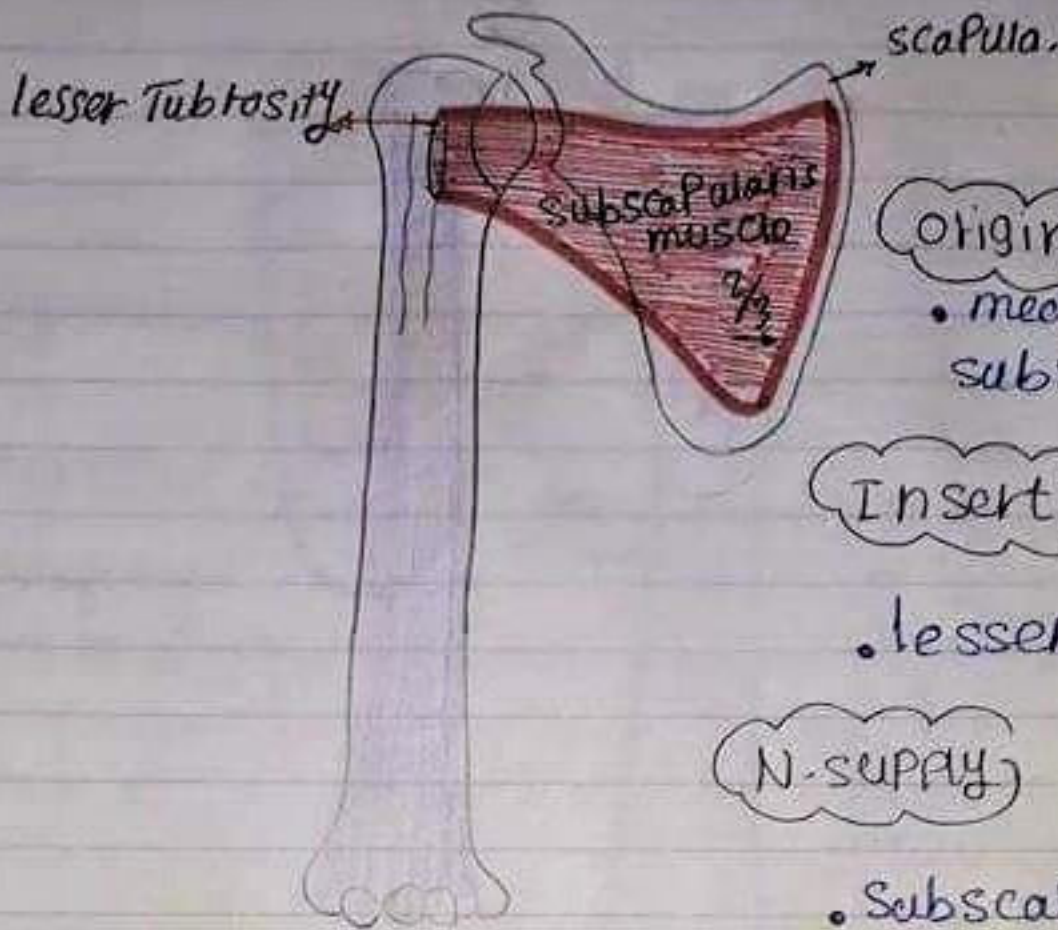 scapula.
lesser Tubrosity
subscapularis
muscle
2/3
Origin
• med
subs
Insert
• lesser
N. supply
• Subscap